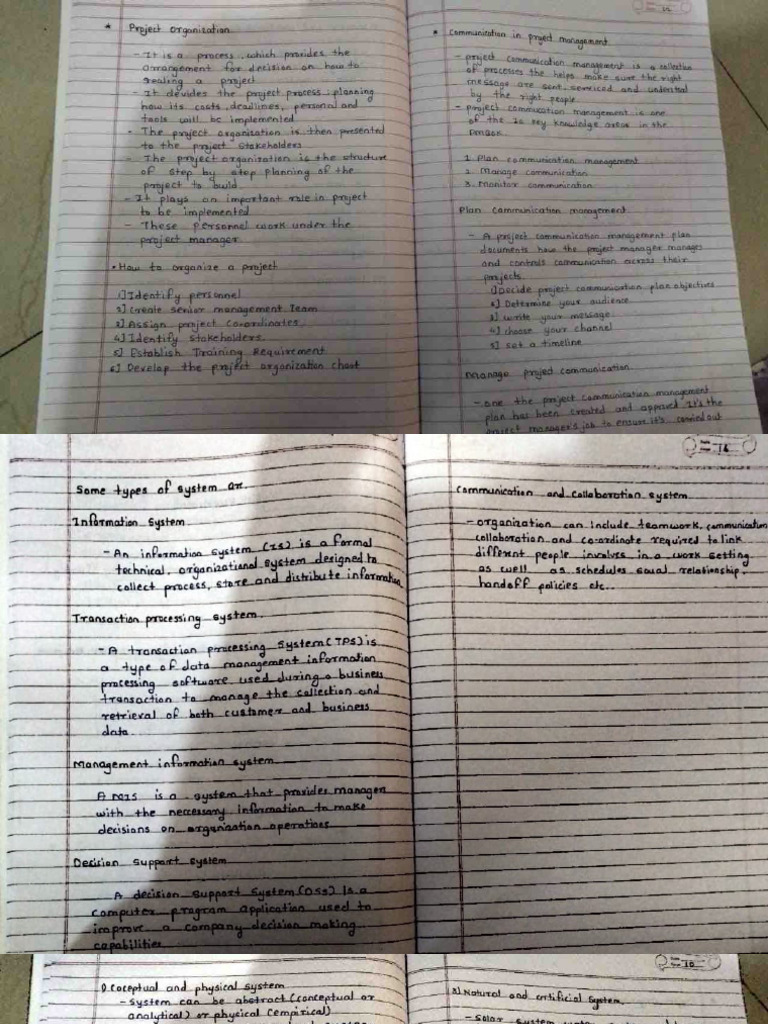 * Project Organization
- It is a process, which provides the
arrangement for decision on how to
realing a project
- It devides the project process, planning
how its costs, deadlines, personal and
tools will be implemented
- The project organization is then presented
to the project stakeholders
- The project organization is the structure
of step by step planning of the
project to build.
- It plays an important role in project
to be implemented
- These personnel work under the
project manager.
• How to organize a project
1] Identify personnel
2] Create senior management Team
3] Assign project Co-ordinates
4] Identify stakeholders.
5] Establish Training Requirement
6] Develop the project organization chart
• Communication in project management
- project communication management is a collection
of processes the helps make sure the right
message are sent, serviced and understood
by the right people
- project communication management is one
of the 10 key knowledge areas in the
PMBOK.
1. Plan communication management
2. Manage communication
3. Monitor communication.
Plan Communication management
- A project communication management plan
documents how the project manager manages
and controls communication across their
projects.
1] Decide project communication plan objectives
2] Determine your audience.
3] write your message
4] choose your channel
5] set a timeline
Manage project communication.
- one the project communication management
plan has been created and approved It's the
project manager's job to ensure it's carried out
Some types of system are.
Information System
- An information system (IS) is a formal
technical, organizational system designed to
collect process, store and distribute information
Transaction processing system.
- A transaction processing system (TPS) is
a type of data management information
processing software used during a business
transaction to manage the collection and
retrieval of both customer and business
data.
Management information system
A MIS is a system that provides manager
with the necessary information to make
decisions on organization operations
Decision Support system
A decision support system (DSS) is a
computer program application used to
improve a company decision making
capabilities
16
Communication and collaboration system
- organization can include teamwork, communication
collaboration and co-ordinate required to link
different people involves in a work setting
as well as schedules soual relationship,
handoff policies etc..
1) Coceptual and physical system
- system can be abstract (conceptual or
analytical) or physical (empirical)
10
3) Natural and artificial system.
- Solar system